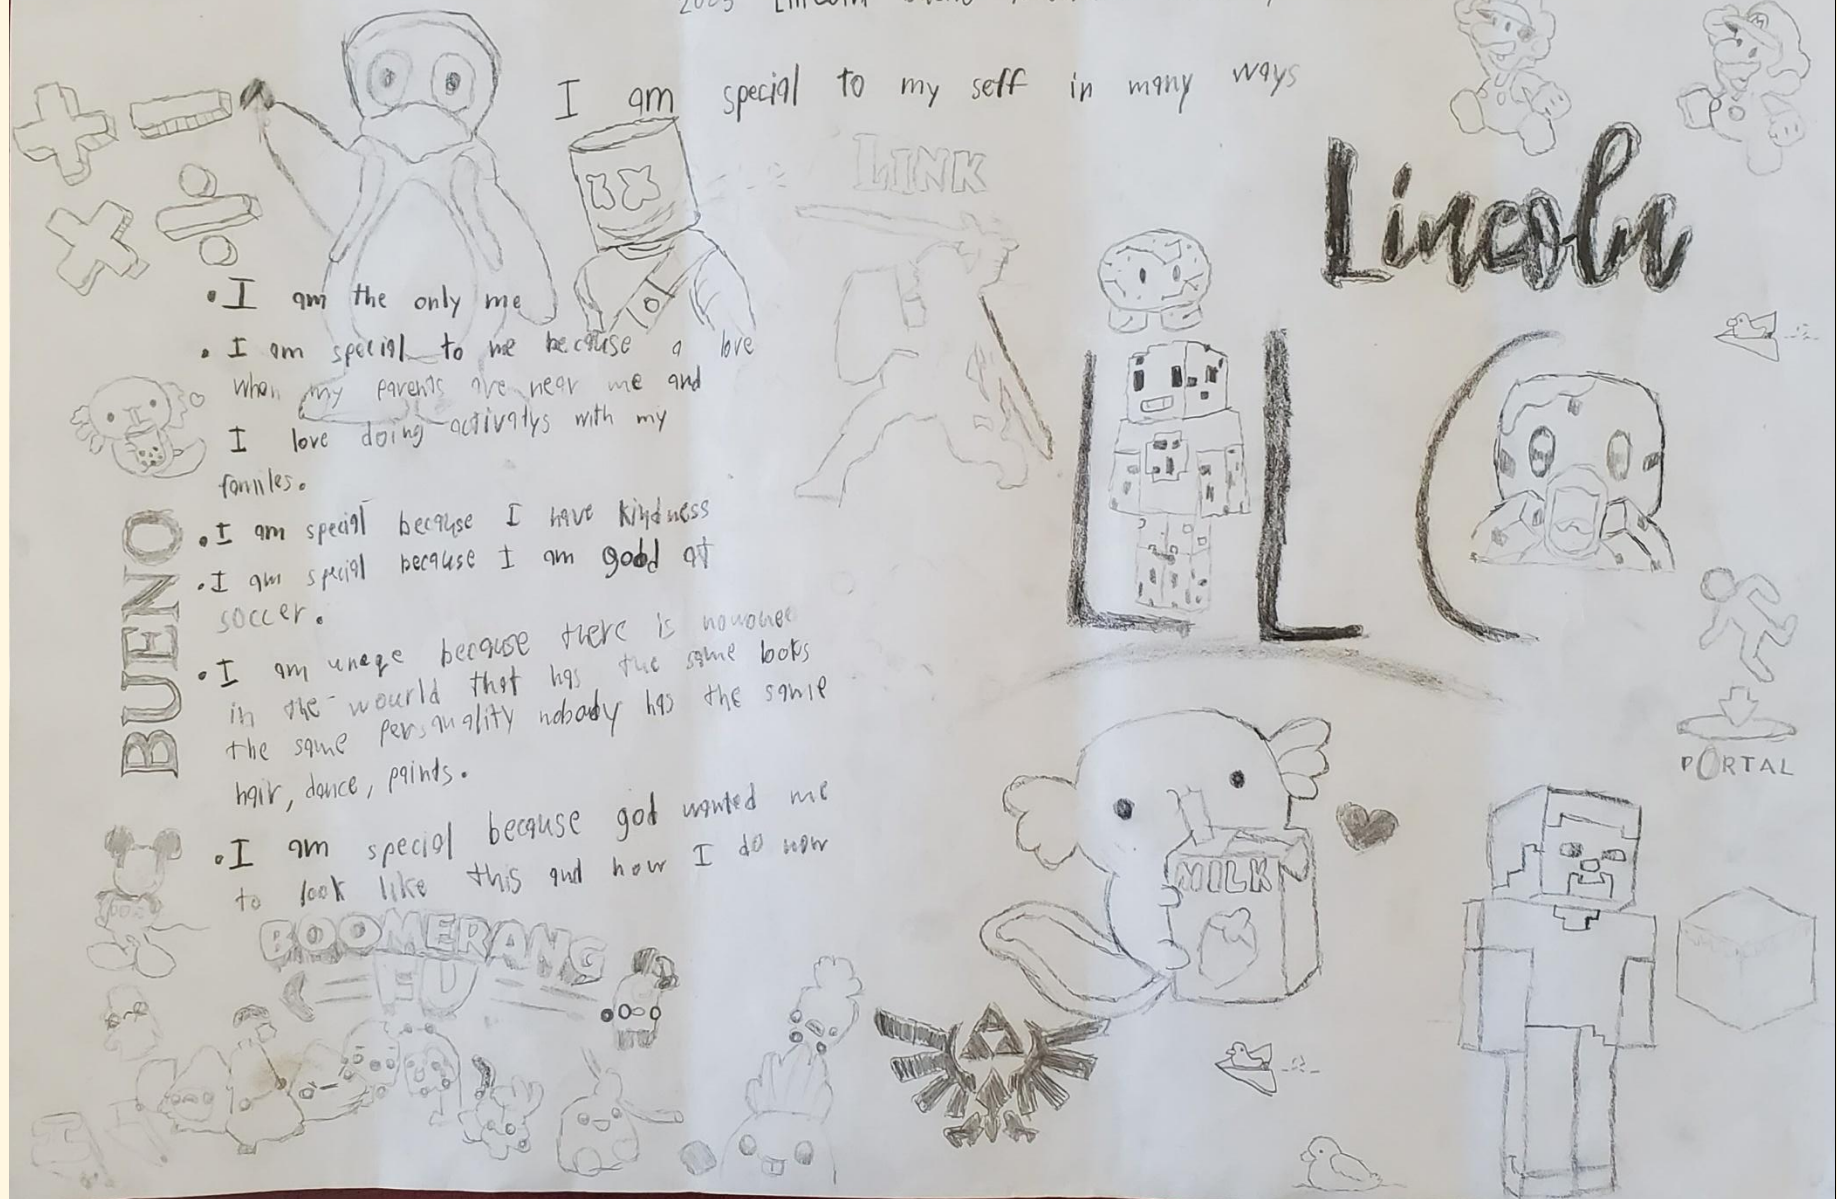 I am special to my self in many ways
LINK
Lincoln
• I am the only me
• I am special to me because a love
when my parents are near me and
I love doing activatys with my
familes.
• I am special because I have kindness
• I am special because I am good at
soccer.
• I am uneqe because there is
in the wourld that has the same looks
the same persqnality nobody has the same
hair, dance, paints.
• I am special because god wanted me
to look like this and how I do now
BUENO
LLC
PORTAL
MILK
BOOMERANG
FU